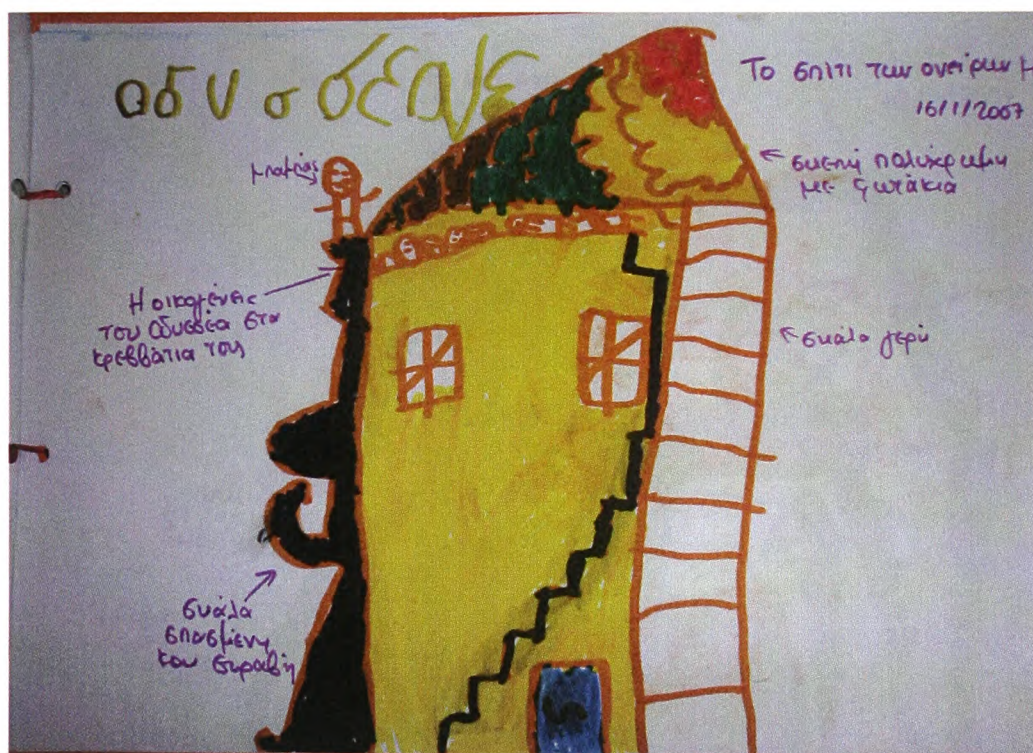 οδυσσέας
Το σπίτι των ονείρων μ
16/1/2007
μπαμπάς
σκεπή πολύχρωμη
με φωτάκια
Η οικογένεια
του Οδυσσέα στα
κρεββάτια τους
σκάλα γερή
σκάλα
σπασμένη
και στραβή